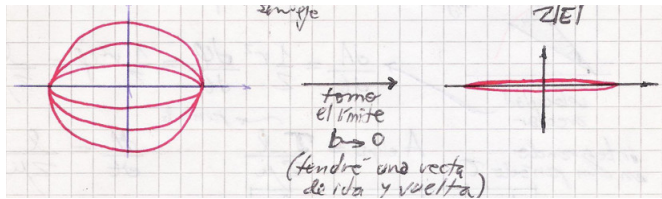 2|E|
tomo
el límite
b→0
(tendré una recta
de ida y vuelta)